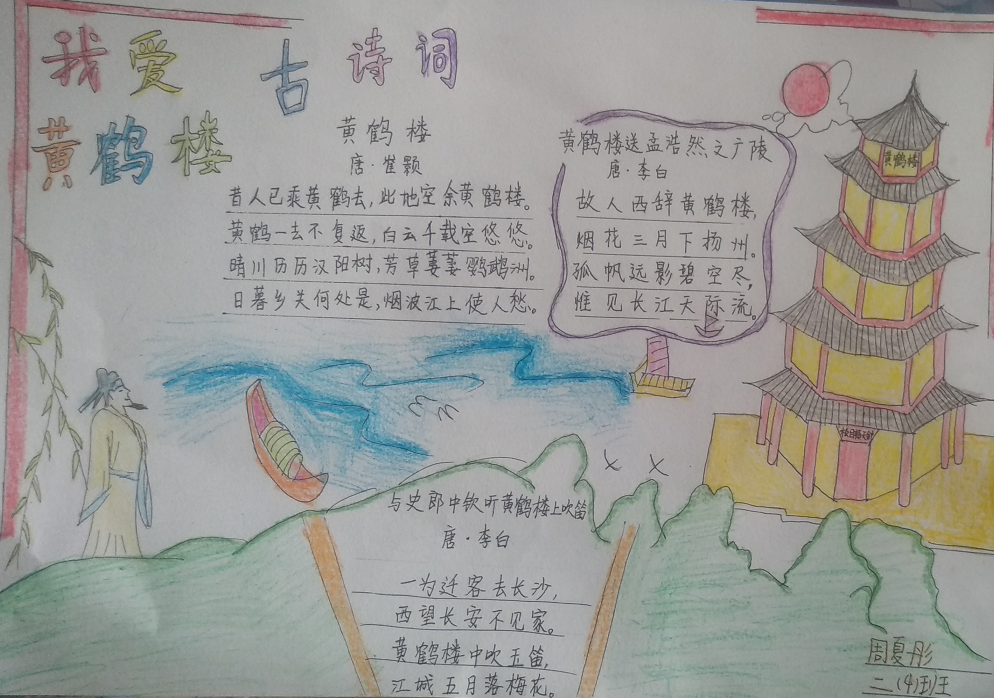 我爱古诗词
黄鹤楼
黄鹤楼
唐·崔颢
昔人已乘黄鹤去，此地空余黄鹤楼。
黄鹤一去不复返，白云千载空悠悠。
晴川历历汉阳树，芳草萋萋鹦鹉洲。
日暮乡关何处是，烟波江上使人愁。
黄鹤楼送孟浩然之广陵
唐·李白
故人西辞黄鹤楼，
烟花三月下扬州。
孤帆远影碧空尽，
惟见长江天际流。
黄鹤楼
与史郎中钦听黄鹤楼上吹笛
唐·李白
一为迁客去长沙，
西望长安不见家。
黄鹤楼中吹玉笛，
江城五月落梅花。
周夏彤
二（4）班